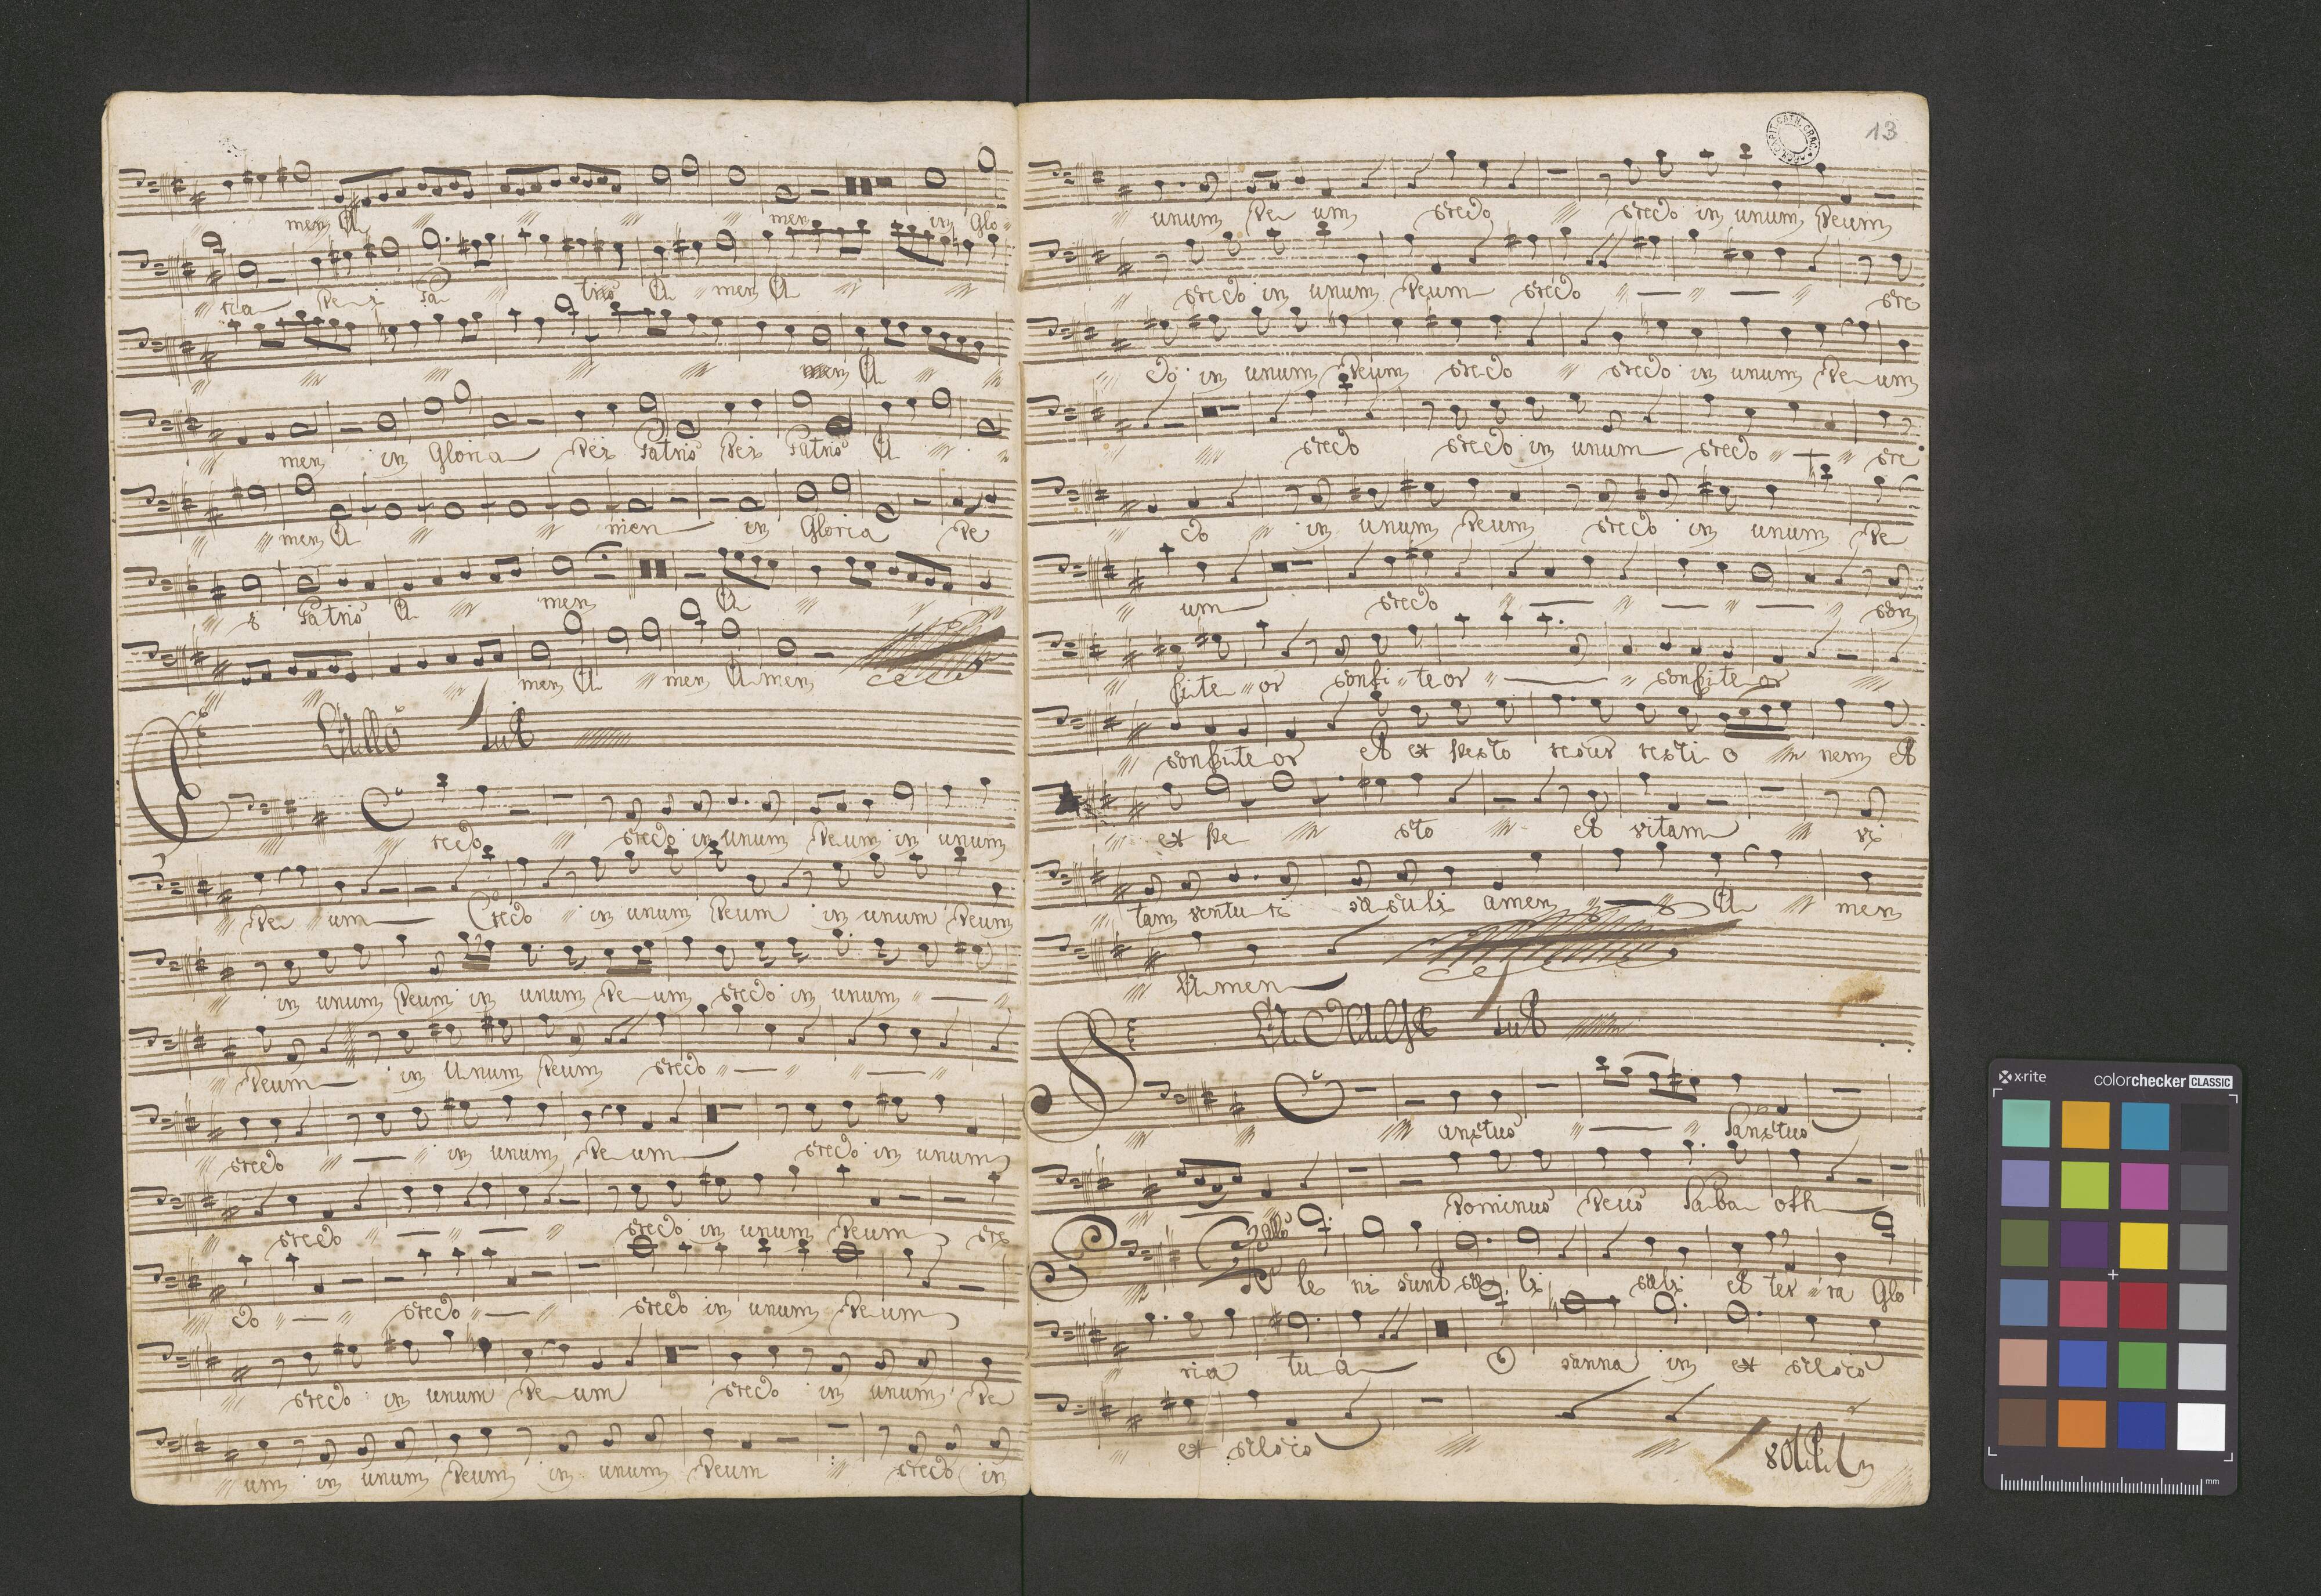 men A men in Glo-
ria Dei Pa tris A men A
men A
men in Gloria Dei Patris Dei Patris A
men A men in Gloria De
i Patris A men A
men A men A men
All:o
redo credo in unum Deum in unum
De um Credo in unum Deum in unum Deum
in unum Deum in unum De um credo in unum
Deum in Unum Deum credo
credo in unum De um credo in unum
credo credo in unum Deum cre
do credo credo in unum Deum
credo in unum De um credo in unum De
um in unum Deum in unum Deum credo in
13
unum De um credo credo in unum Deum
credo in unum Deum credo cre
do in unum Deum credo credo in unum De um
credo credo in unum credo cre
do in unum Deum credo in unum De
um credo con
fite or confi teor confite or
confite or et ex pecto resur recti o nem et
ex pe cto et vitam vi
tam ventu ri sæculi amen A men
Amen
anctus Sanctus
Dominus Deus Saba oth
Ple ni sunt cæ li cæli et ter ra Glo
ria tu a O sanna in ex celsis
ex celsis
x·rite colorchecker CLASSIC
mm